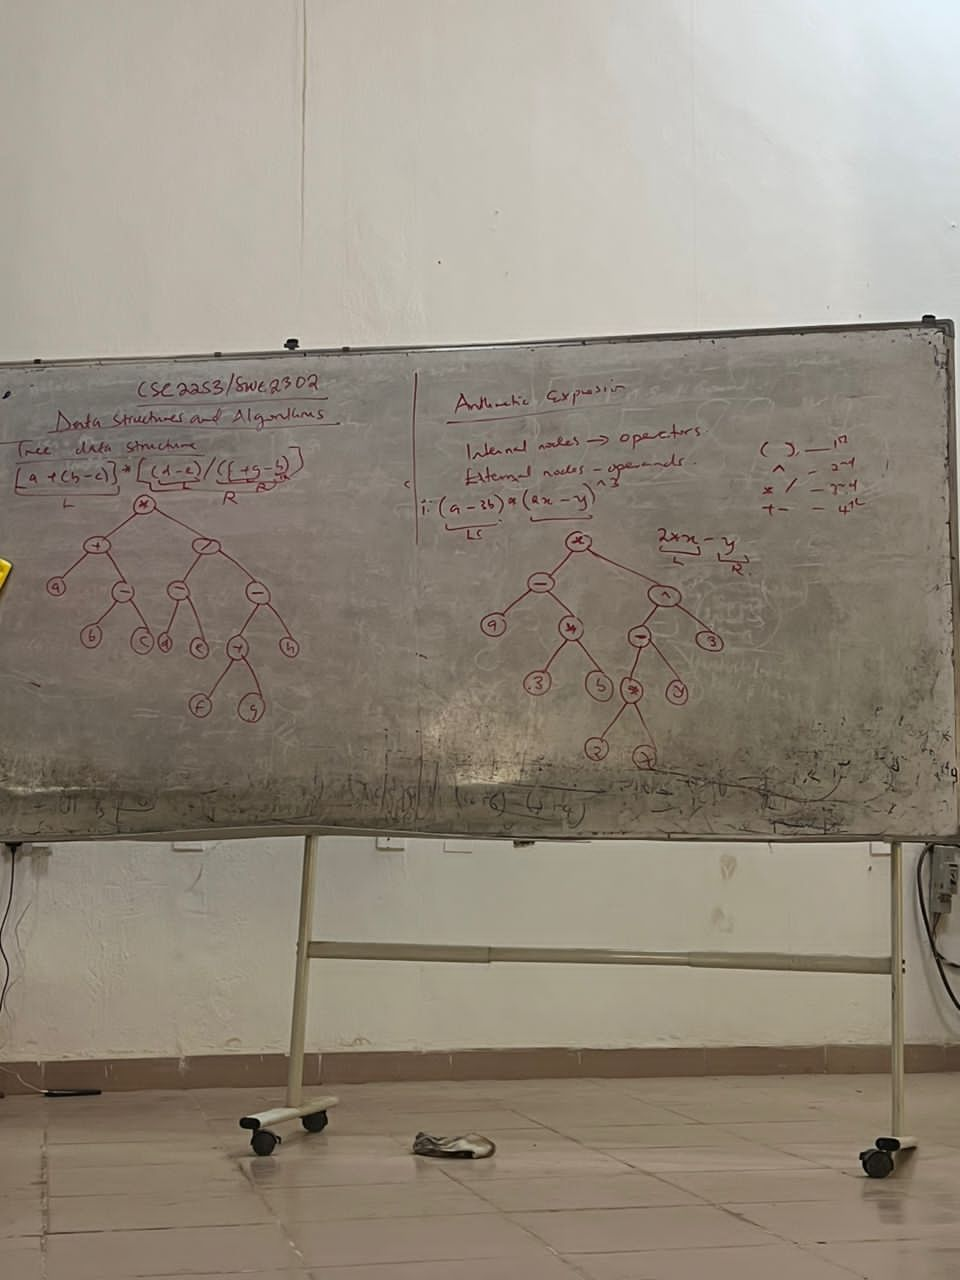 CSC2253/SWE2302
Data Structures and Algorithms
Tree data structure
[a+(b-c)]*[(d-e)/(f+g-h)]
L L R R
*
+ /
a - - -
b c d e + h
f g
Arithmetic Expression
Internal nodes → operators.
External nodes - operands.
( ) — 1st
^ - 2nd
* / - 3rd
+ - - 4th
i. (a-3b)*(2x-y)^3
LS
2*x-y
L R.
*
- ^
a * - 3
3 b * y
2 x